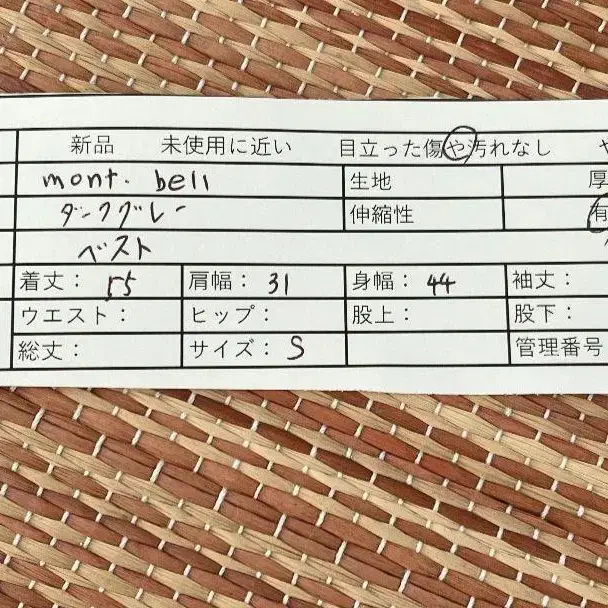 新品 未使用に近い 目立った傷や汚れなし や
mont. bell 生地 厚
ダークグレー 伸縮性 有
ベスト
着丈： 55 肩幅： 31 身幅： 44 袖丈：
ウエスト： ヒップ： 股上： 股下：
総丈： サイズ： S 管理番号